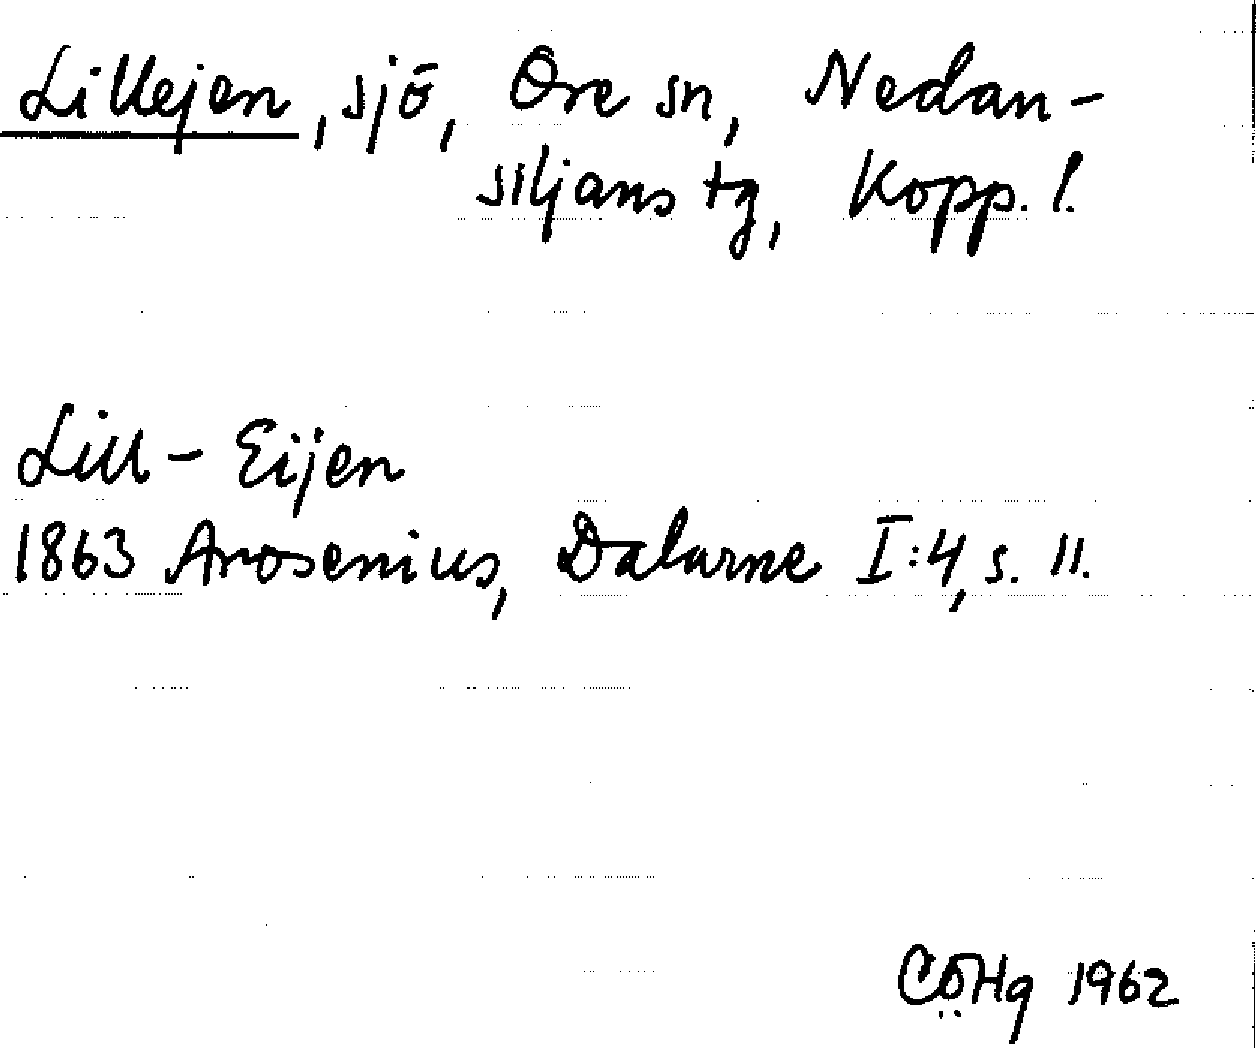 Lillejen, sjö, Ore sn, Nedan-
siljans tg, Kopp. l.
Lill-Eijen
1863 Arosenius, Dalarne I:4, s. 11.
CÖHg 1962